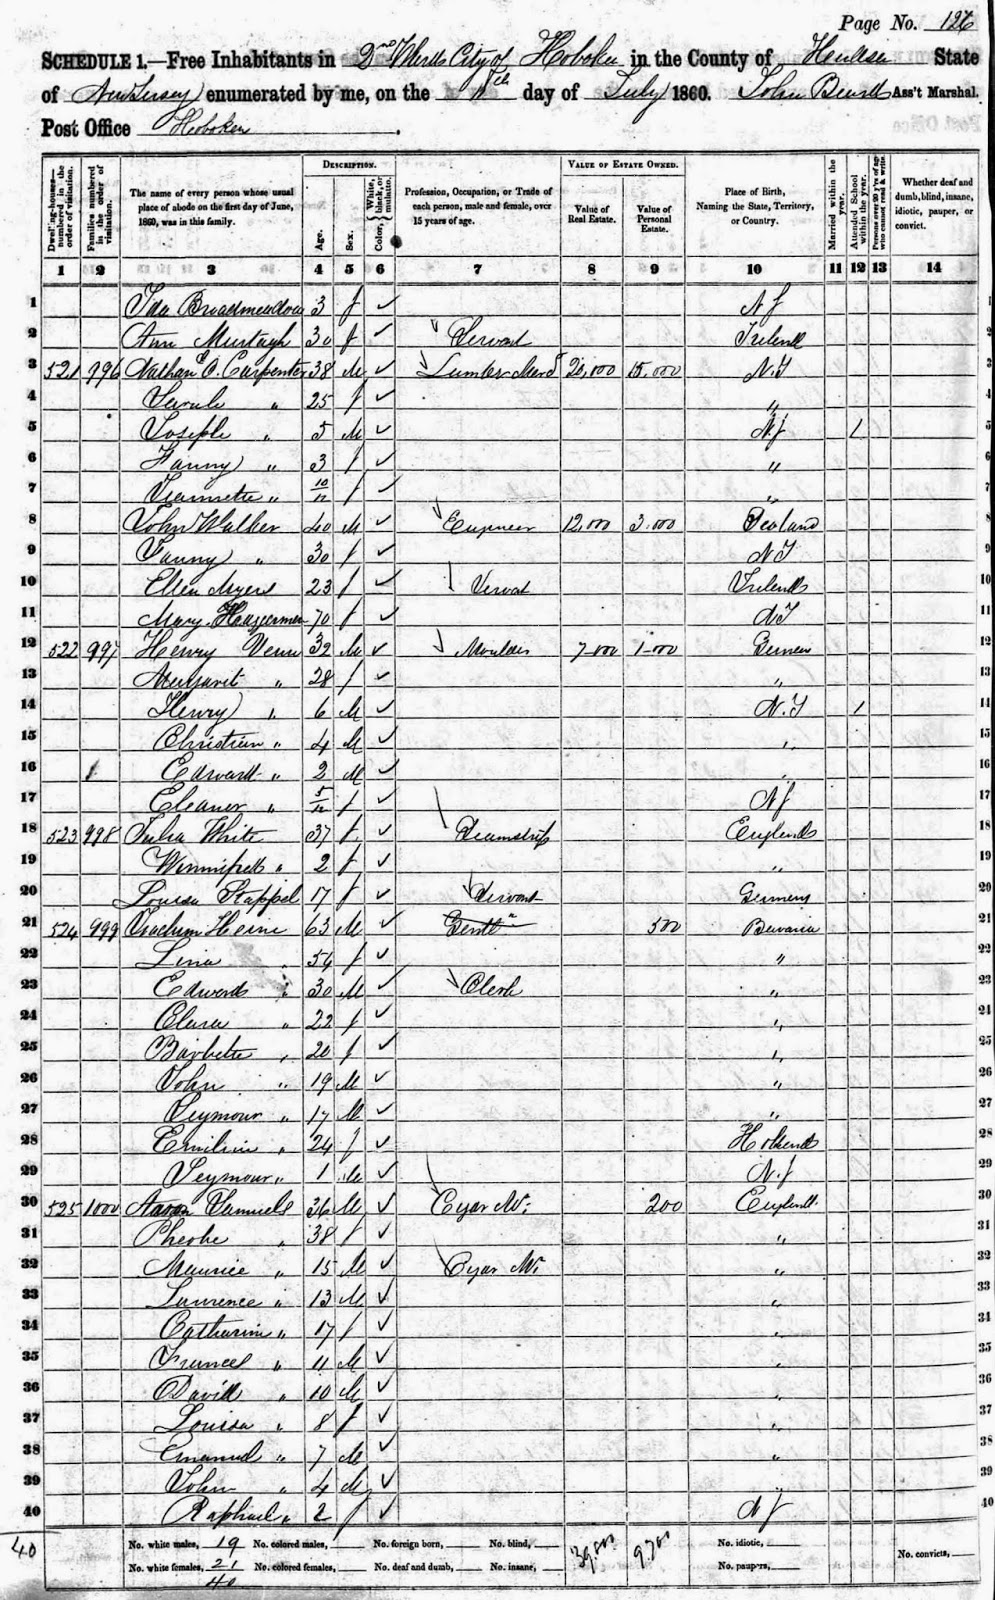 Page No. 126
SCHEDULE 1.—Free Inhabitants in 2nd Ward City of Hoboken in the County of Hudson State
of New Jersey enumerated by me, on the day of July 1860. John Ass't Marshal.
Post Office Hoboken.
DESCRIPTION. VALUE OF ESTATE OWNED.
Dwelling-houses—numbered in the order of visitation. Families numbered in the order of visitation. The name of every person whose usual place of abode on the first day of June, 1860, was in this family. Age. Sex. Color, White, black, or mulatto. Profession, Occupation, or Trade of each person, male and female, over 15 years of age. Value of Real Estate. Value of Personal Estate. Place of Birth, Naming the State, Territory, or Country. Married within the year. Attended School within the year. Persons over 20 y'rs of age who cannot read & write. Whether deaf and dumb, blind, insane, idiotic, pauper, or convict.
1 2 3 4 5 6 7 8 9 10 11 12 13 14
1 Ida Broadmeadow 3 f ✓ N J 1
2 Ann Murtagh 30 f ✓ Servant Ireland 2
3 521 996 Nathan O. Carpenter 38 M ✓ Lumber Merct 20,000 15,000 N.Y 3
4 Sarah " 25 f ✓ " 4
5 Joseph " 5 M ✓ N J 1 5
6 Fanny " 3 f ✓ " 6
7 Jeannette " 10/12 f ✓ " 7
8 John Walker 40 M ✓ Engineer 12,000 3,000 Scotland 8
9 Fanny " 30 f ✓ N Y 9
10 Ellen Myers 23 f ✓ Servant Ireland 10
11 Mary 70 f ✓ N Y 11
12 522 997 Henry 32 M ✓ Moulder 7000 1000 12
13 Margaret " 28 f ✓ " 13
14 Henry " 6 M ✓ N.Y 1 14
15 Christian " 4 M ✓ " 15
16 Edward " 2 M ✓ " 16
17 Eleanor " 5/12 f ✓ N J 17
18 523 998 Julia White 37 f ✓ Seamstress England 18
19 Winnifred " 2 f ✓ " 19
20 Louisa Stappel 17 f ✓ Servant Germany 20
21 524 999 Joachim Heine 63 M ✓ Gentn 500 Bavaria 21
22 Lena " 54 f ✓ " 22
23 Edward " 30 M ✓ Clerk " 23
24 Clara " 22 f ✓ " 24
25 Barbetta " 20 f ✓ " 25
26 John " 19 M ✓ " 26
27 Seymour " 17 M ✓ " 27
28 " 24 f ✓ 28
29 Seymour " 1 M ✓ N.J 29
30 525 1000 Aaron Samuels 36 M ✓ Cigar Mr 200 England 30
31 Pheobe " 38 f ✓ " 31
32 Maurice " 15 M ✓ Cigar Mr " 33
33 Lawrence " 13 M ✓ " 33
34 Catharine " 17 f ✓ " 34
35 Frances " 11 M ✓ " 35
36 David " 10 M ✓ " 36
37 Louisa " 8 f ✓ " 37
38 Emanuel " 7 M ✓ " 38
39 John " 4 M ✓ " 39
40 Raphael " 2 f ✓ N J 40
40 No. white males, 19 No. colored males, No. foreign born, No. blind, 39,000 No. idiotic,
No. white females, 21 No. colored females, No. deaf and dumb, No. insane, No. paupers, No. convicts,
40